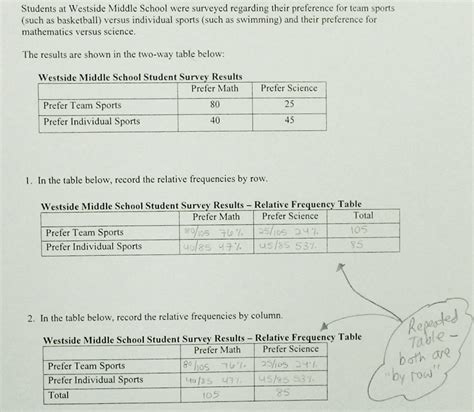 Students at Westside Middle School were surveyed regarding their preference for team sports
(such as basketball) versus individual sports (such as swimming) and their preference for
mathematics versus science.
The results are shown in the two-way table below:
Westside Middle School Student Survey Results
Prefer Math Prefer Science
Prefer Team Sports 80 25
Prefer Individual Sports 40 45
1. In the table below, record the relative frequencies by row.
Westside Middle School Student Survey Results – Relative Frequency Table
Prefer Math Prefer Science Total
Prefer Team Sports 80/105 76% 25/105 24% 105
Prefer Individual Sports 40/85 47% 45/85 53% 85
2. In the table below, record the relative frequencies by column.
Westside Middle School Student Survey Results – Relative Frequency Table
Prefer Math Prefer Science
Prefer Team Sports 80/105 76% 25/105 24%
Prefer Individual Sports 40/85 47% 45/85 53%
Total 105 85
Repeated
Table –
both are
"by row"